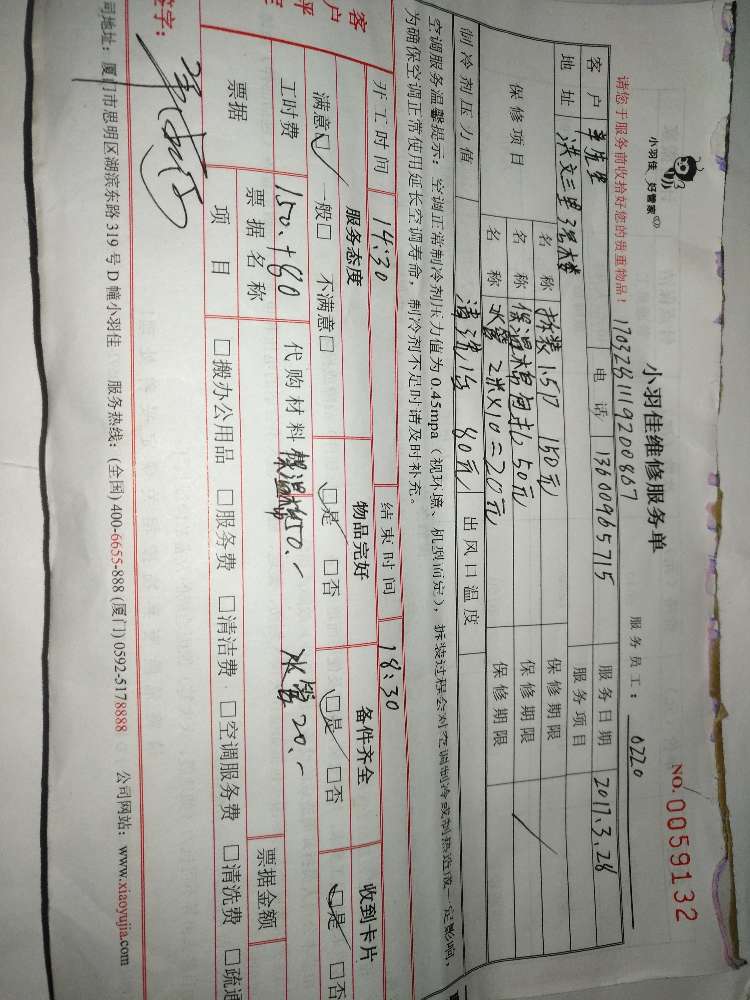 小羽佳维修服务单
NO. 0059132
小羽佳 好管家
请您于服务前收拾好您的贵重物品!
1703281119200867
服务员工: 0220
客户
电话 13600965715
服务日期 2017.3.28
地址 洪文三里
服务项目
保修项目
名称 拆装1.5P 150元 保修期限
名称 保温棉包扎50元 保修期限
名称 水管2米X10=20元 保修期限
制冷剂压力值 清洗1台 80元 出风口温度
空调服务温馨提示:空调正常制冷剂压力值为0.45mpa(视环境、机型而定),拆装过程会对空调制冷或制热造成一定影响,
为确保空调正常使用延长空调寿命,制冷剂不足时请及时补充。
开工时间 14:30 结束时间 18:30
客户评
服务态度 物品完好 备件齐全 收到卡片
满意□ 一般□ 不满意□ □是 □否 □是 □否 □是 □否
工时费 150.+80 代购材料 保温棉50.- 水管20.-
票据 票据名称 票据金额
项目 □搬办公用品 □服务费 □清洁费 □空调服务费 □清洗费 □疏通
签字:
司地址:厦门市思明区湖滨东路319号D幢小羽佳 服务热线:(全国) 400-6655-888 (厦门) 0592-5178888 公司网站:www.xiaoyujia.com